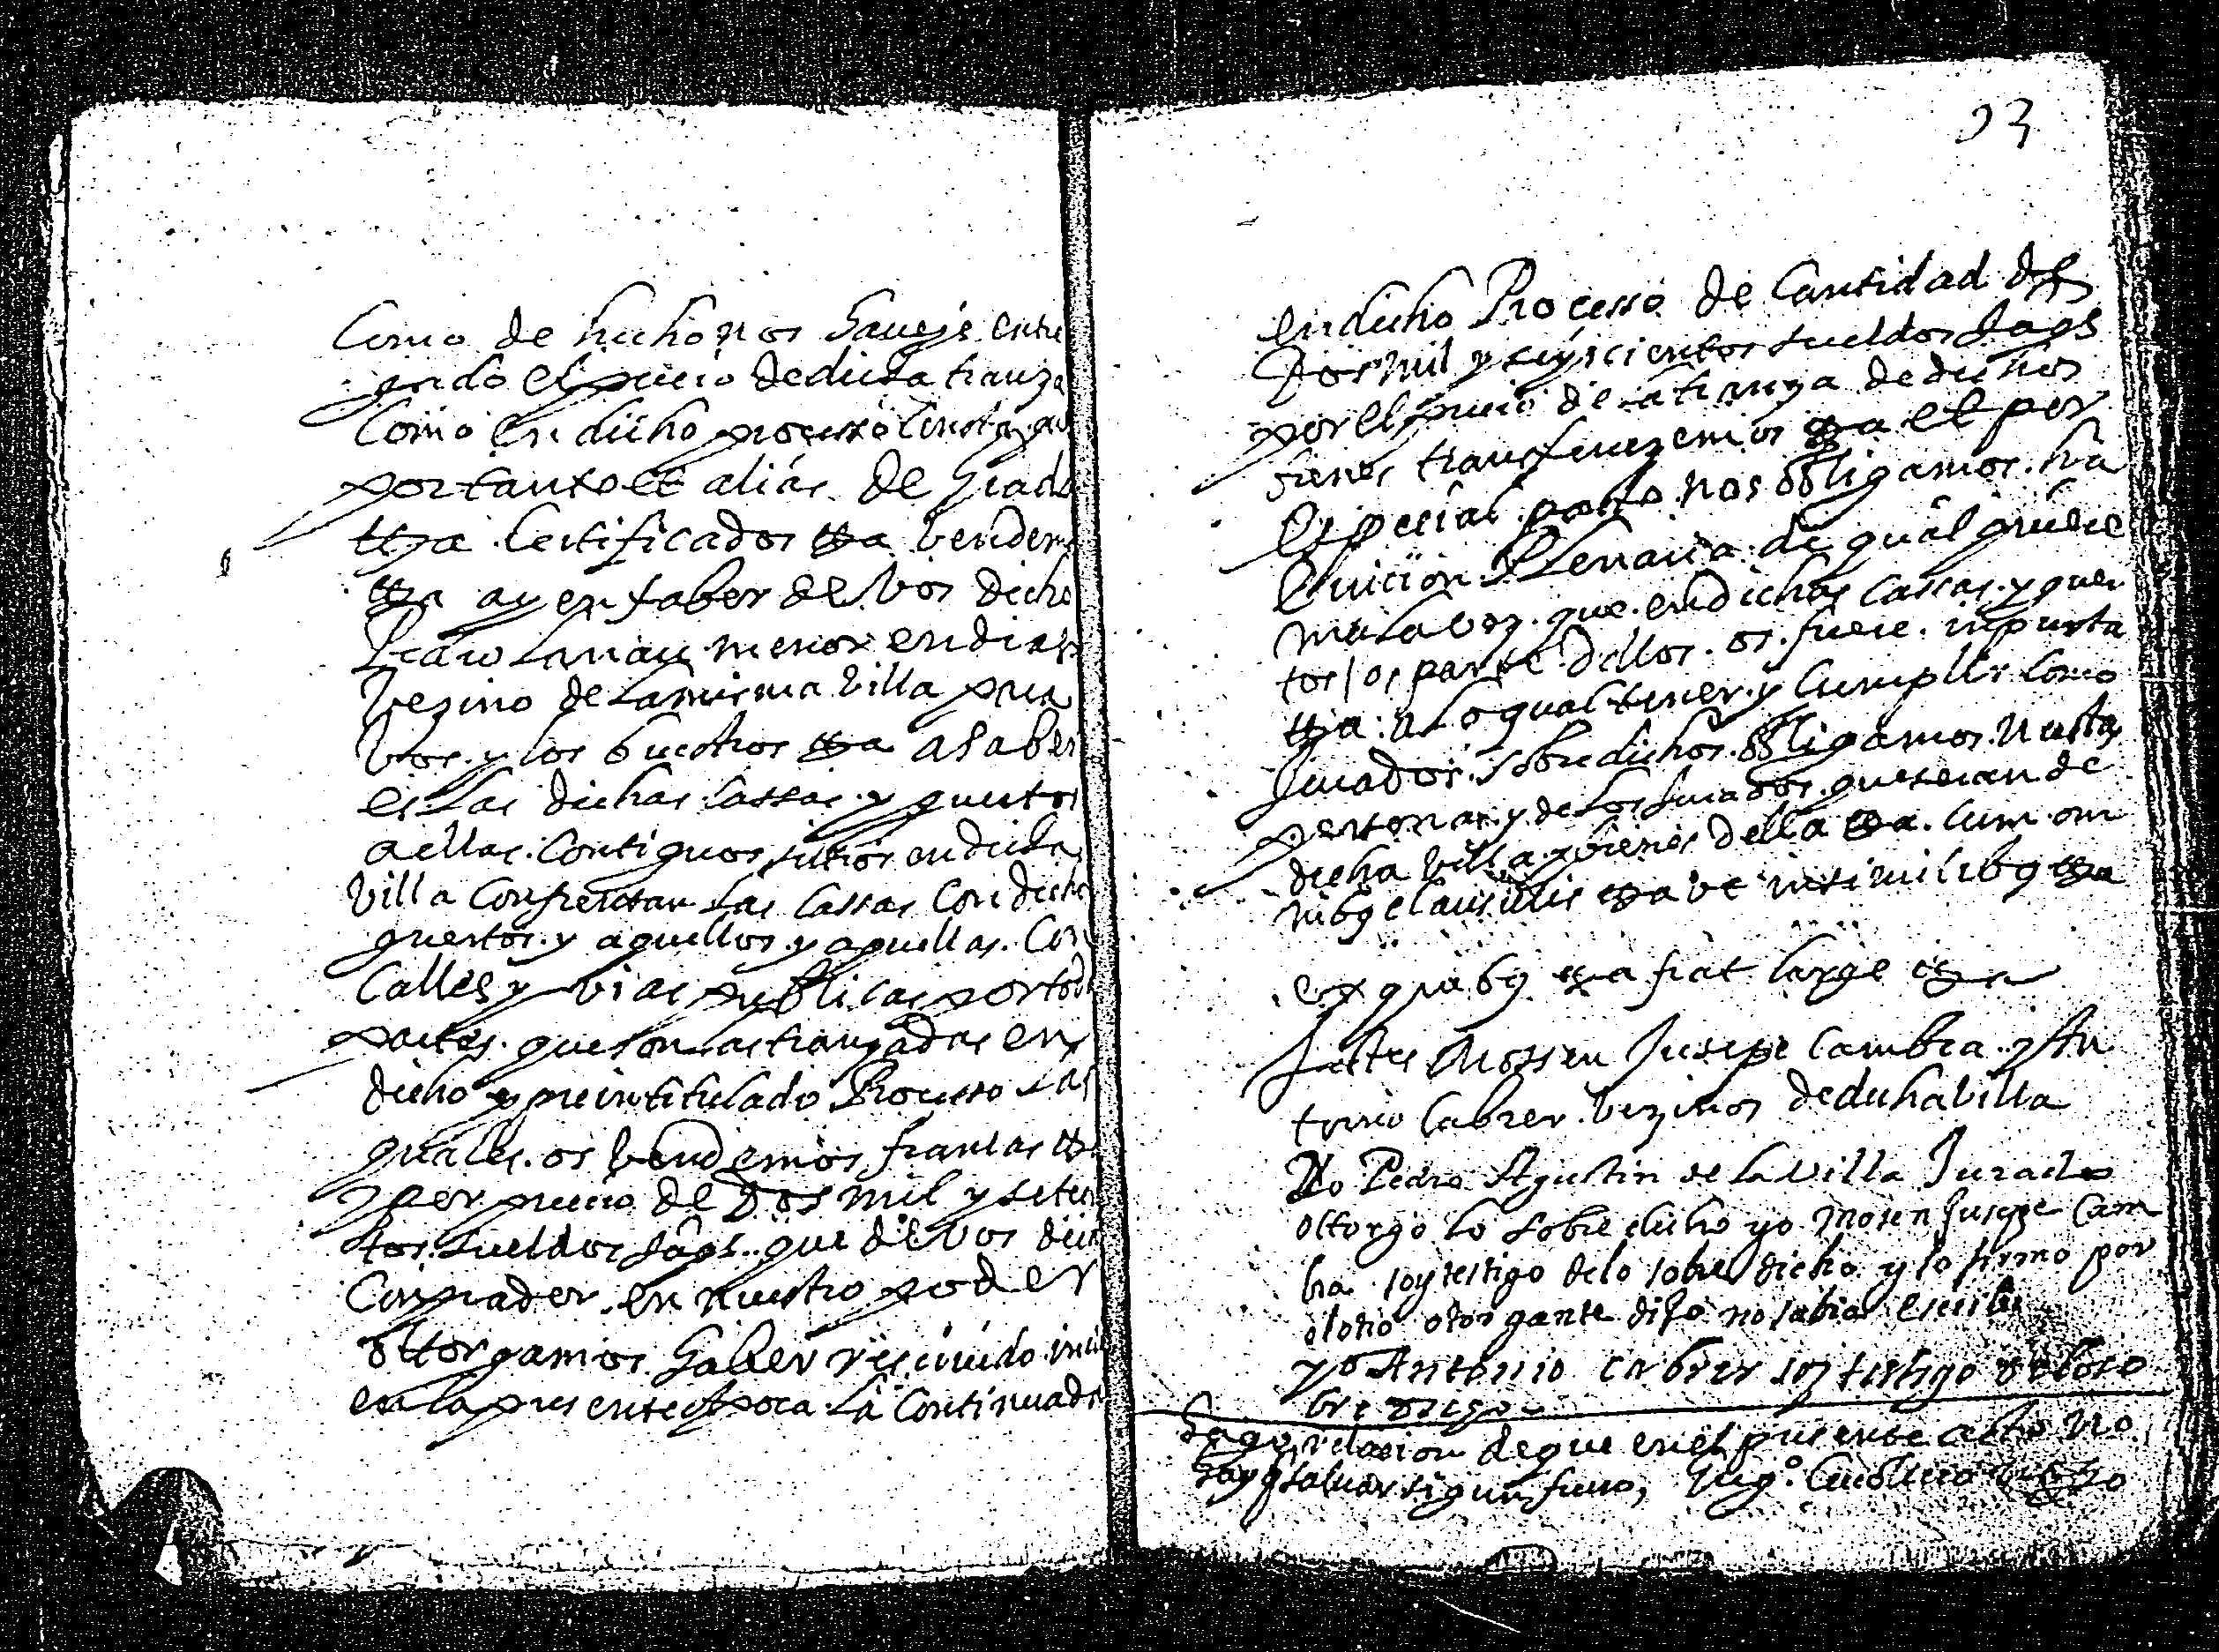 Como de hecho nos haueys entre
gado el precio de dicha tranza
Como en dicho processo Consta y pa
por tanto et alias de grado
etta Certificados etta bendem
etta ay en fabor de bos dicho
Pedro Lanau menor en dias
bezino de la misma billa para
bos y los buestros etta a saber
es las dichas cassas y guertos
a ellas Contiguos sitios en dicha
billa Confrentan las cassas Con dichos
guertos y aquellos y aquellas Con
Calles y bias publicas por todas
partes que son las tranzadas en
dicho y preintitulado Processo las
quales os bendemos francas etta
por precio de Dos mil y setcien
tos sueldos Jaqs. que de bos dicho
Comprador en nuestro poder
ottorgamos haber reciuido incl
en la presente apoca la Continuada
93
en dicho Processo de Cantidad de
Dos mil y seyscientos sueldos Jaqs
por el precio de la tranza de dichos
bienes transferezemos etta et por
especial pacto nos obligamos ha
Euiccion Plenaria de qual quiere
mala boz que en dichas cassas y guer
tos / o parte dellos os fuere inpuesta
etta a lo qual tener y Cumplir Como
Jurados sobredichos obligamos nuestras
personas y de los Jurados que seran de
dicha billa y bienes della etta cum om
nibq clausulis etta ut in similibq etta
ex quibq etta fiat large etta
Testes Mossen Jusepe Cambra y An
tonio Cabrer bezinos de dicha billa
Yo Pedro Agustin de la Villa Jurado
ottorgo lo sobre dicho yo mosen Jusepe Cam
bra soy testigo de lo sobre dicho y lo firmo por
el otro otorgante dijo no sabia escribir
yo Antonio cabrer soy testigo de lo so
bre digo
hago relacion de que en el presente acto no
hay q saluar sigun fuero,